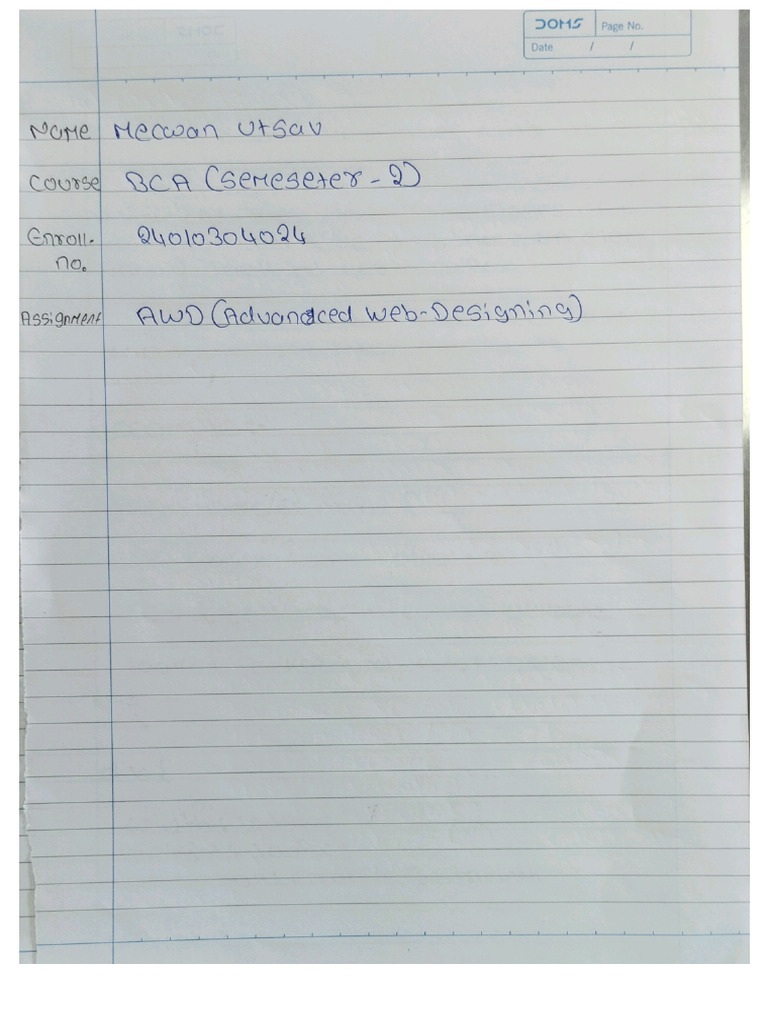 DOMS Page No.
Date / /
Name Mecwan Utsav
Course BCA (Semeseter - 2)
Enroll. 24010304024
no.
Assignment AWD (Advandced Web-Designing)